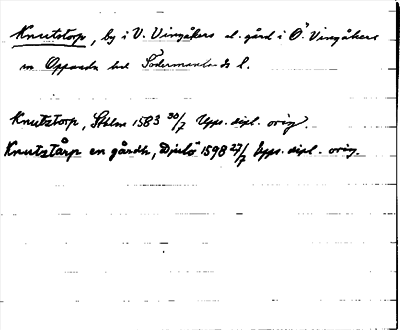 Knutstorp, by i V. Vingåkers el. gård i Ö. Vingåkers
sn Oppunda hd Södermanlands l.
Knutstorp, Sthlm 1583 30/7 Upps. dipl. orig.
Knutztårp en gårdh, Djulö 1598 27/7 Upps. dipl. orig.